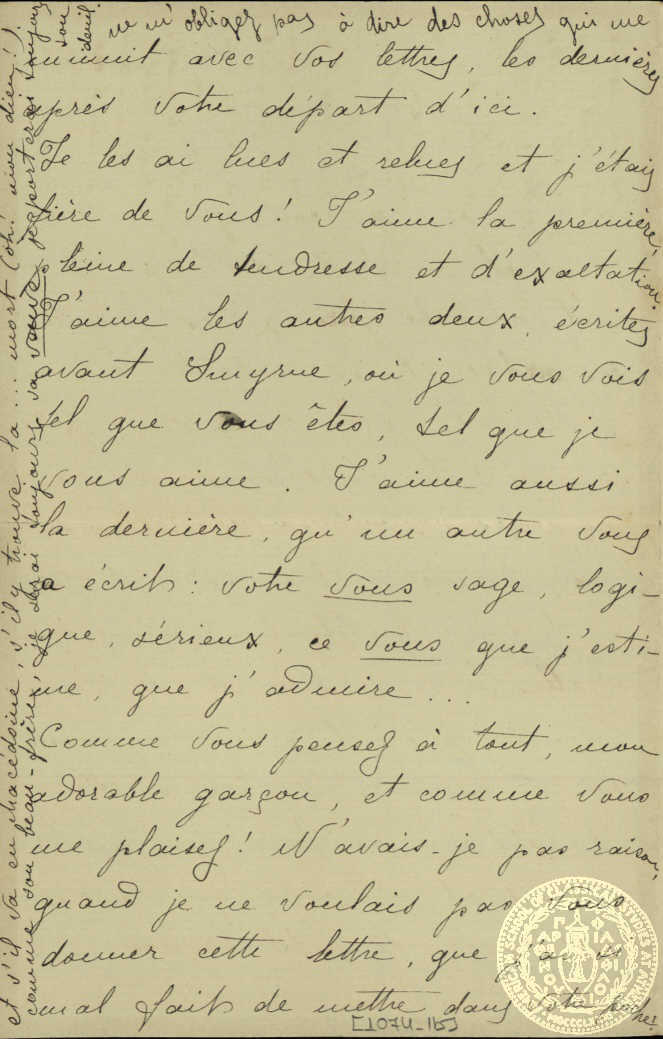 ne m'obligez pas à dire des choses qui me
avec vos lettres, les dernières
après votre départ d'ici.
Je les ai lues et relues et j'étais
fière de vous! J'aime la première,
pleine de tendresse et d'exaltation.
J'aime les autres deux, écrites
avant Smyrne, où je vous vois
tel que vous êtes, tel que je
vous aime. J'aime aussi
la dernière, qu'un autre vous
a écrit: votre vous sage, logi-
que, sérieux, ce vous que j'esti-
me, que j'admire...
Comme vous pensez à tout, mon
adorable garçon, et comme vous
me plaisez! N'avais-je pas raison,
quand je ne voulais pas vous
donner cette lettre, que j'ai si
mal fait de mettre dans votre poche!
et s'il va en Macédoine, s'il y trouve la... mort (oh! mon dieu!)
comme son beau-frère, je serai toujours sa veuve, je porterai toujours
son
deuil.
[1074-1b]